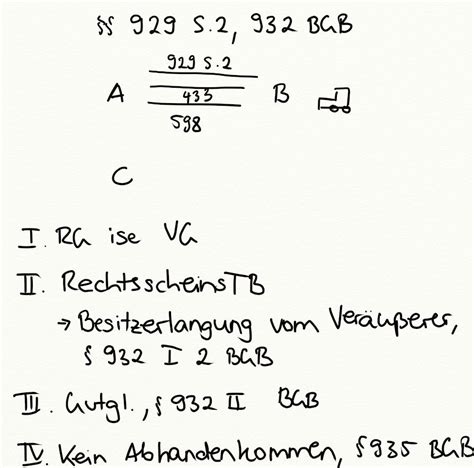 §§ 929 S.2, 932 BGB
929 S.2
A 433 B
598
C
I. RG ise VG
II. RechtsscheinsTB
→ Besitzerlangung vom Veräußerer,
§ 932 I 2 BGB
III. Gutgl., § 932 II BGB
IV. Kein Abhandenkommen, § 935 BGB